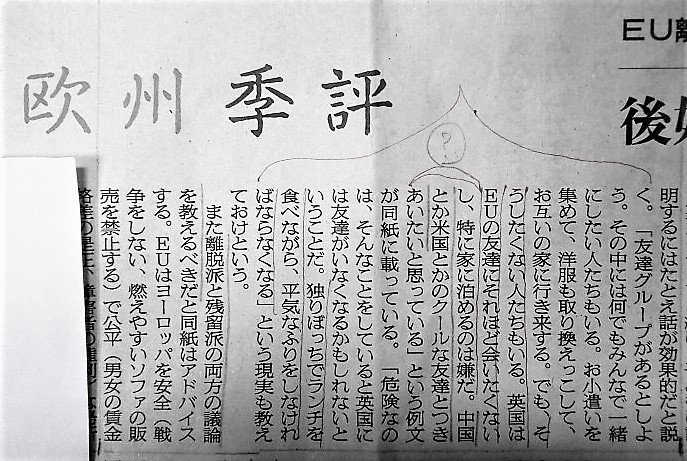 EU離
後
欧州季評
明するにはたとえ話が効果的だと説
く。「友達グループがあるとしよ
う。その中には何でもみんなで一緒
にしたい人たちもいる。お小遣いを
集めて、洋服も取り換えっこして、
お互いの家に行き来する。でも、そ
うしたくない人たちもいる。英国は
EUの友達にそれほど会いたくない
し、特に家に泊めるのは嫌だ。中国
とか米国とかのクールな友達とつき
あいたいと思っている」という例文
が同紙に載っている。「危険なの
は、そんなことをしていると英国に
は友達がいなくなるかもしれないと
いうことだ。独りぼっちでランチを
食べながら、平気なふりをしなけれ
ばならなくなる」という現実も教え
ておけという。
また離脱派と残留派の両方の議論
を教えるべきだと同紙はアドバイス
する。EUはヨーロッパを安全（戦
争をしない、燃えやすいソファの販
売を禁止する）で公平（男女の賃金
格差の是正、
?